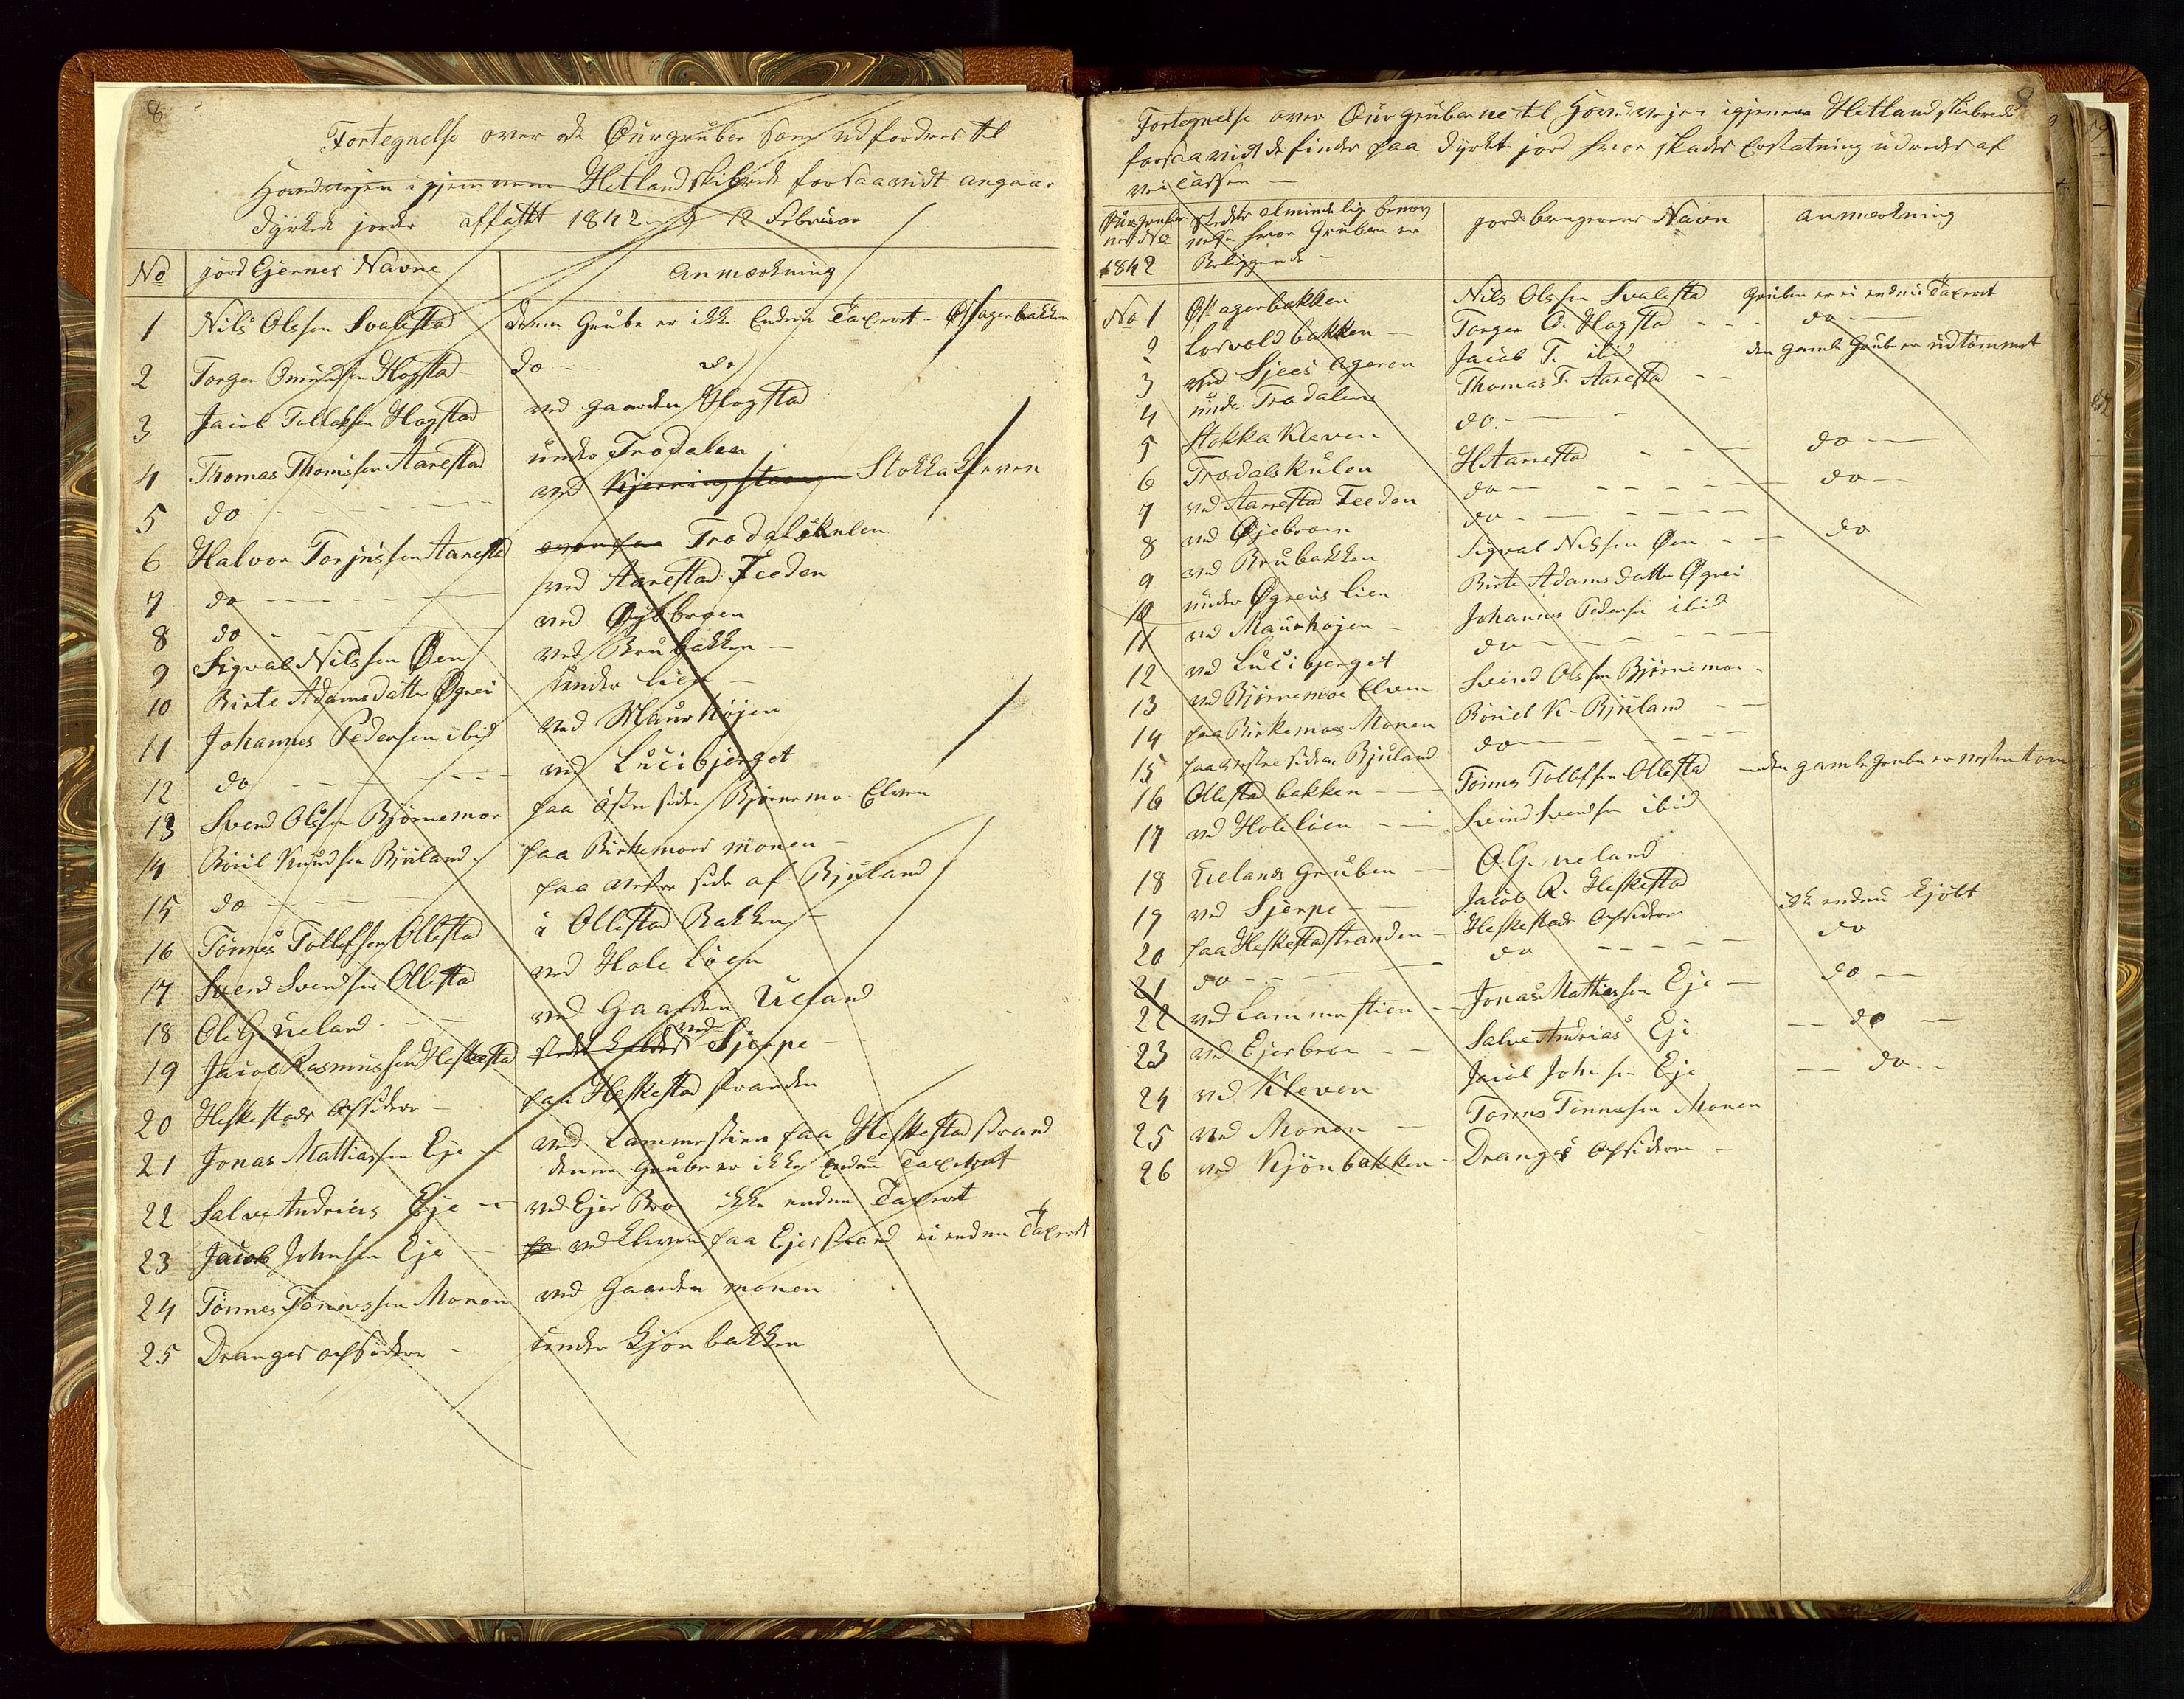 8
Fortegnelse over de Øurgruber som udfordres til
Hovedvejen igjennem Hetland skibrede forsaavidt angaar
dyrkede jorder affattet 1842 d 12 Februar
No jord Ejernes Navne anmærkning
1 Nils Olssen Svalestad denne Grube er ikke Endnu Taxeret - Østagerbakken
2 Torger Omundsen Hogstad do - - do
3 Jacob Tollaksen Hogstad ved gaarden Hogstad
4 Thomas Thomssen Aarestad under Trodalen
5 do - - - ved Kjerringstangen Stokkakleven
6 Halvor Torjussen Aarestad ovenfaa Trodalskulen
7 do - - - ved Aarestad Feeden
8 do - - - ved Øyebroen
9 Sigval Nilssen Øen ved Brubakken -
10 Birte Adamsdatter Øgrei under Lien -
11 Johannes Pedersen ibid ved Maurhøjen
12 do - - - ved Lucibjerget
13 Svend Olssen Bjørnemoe paa østre siden Bjørnemo Elven
14 Bóiel Knudsen Bjuland - paa Birkemoes monen -
15 do - - - paa vestre side af Bjuland
16 Tönnes Tollefsen Ollestad å Ollestad Bakken -
17 Svend Svendsen Ollestad ved Hole Löen
18 Ole G. Ueland - - ved Gaarden Ueland
19 Jacob Rasmussen Heskestad stedet kaldet ved Sjerpe -
20 Heskestads Opsiddere - paa Heskestad stranden
21 Jonas Mathiassen Eje - ved Lammestien paa Heskestad strand
denne Grube er ikke Endnu Taxeret
22 Salve Andreas Eje - ved Ejes Bro ikke endnu Taxeret
23 Jacob Johnsen Eje - pa ved Kleven paa Ejes strand ei endnu Taxeret
24 Tönnes Tönnessen Monen ved Gaarden monen
25 Dranges opsiddere - under Kjönbakken
9
Fortegnelse over Øurgruberne til Hovedvejen igjennem Hetland skibrede
forsaavidt de findes paa dyrket jord hvor skades Erstatning udredes af
vei Cassen -
Øurgruber ned No 1842 stedets almindelige benæv nelse hvor Gruben er Beliggende - jordbrugernes Navn anmærkning
No 1 Østagerbakken Nils Olssen Svalestad Gruben er ei endnu Taxeret
2 Losvold bakken - Torger O. Hogstad - - - do -
3 ved Sjeis Ageren Jacob T. ibid den gamle Grube er udtömmet
4 under Trodalen Thomas T. Aarestad - -
5 Stokka Kleven do. - -
6 Trodalskulen H Aarestad - - - do -
7 ved Aarestad Feeden do - - - - do -
8 ved Øjebroen do - - - -
9 ved Brubakken Sigval Nilssen Øen - - do
10 under Øgreis lien Birte Adamsdatter Øgrei
11 ved Maurhøjen - Johannes Pedersen ibid
12 ved Lucibjerget do - - - -
13 ved Bjørnemoe Elven Svend Olssen Bjørnemoe -
14 paa Birkemoes Monen Bóiel K. Bjuland - -
15 paa vestre siden Bjuland do - - - -
16 Ollestad bakken - - Tönnes Tollefsen Ollestad - den gamle Grube er nesten tom
17 ved Hole löen - - Svend Svendsen ibid
18 Uelands Gruben - O. G. Ueland
19 ved Sjerpe - - Jacob R. Heskestad
20 paa Heskestad stranden - Heskestads Opsiddere ikke endnu kjöbt
21 do - - - do - - - - do
22 ved Lammestien - - Jonas Mathiassen Eje - do -
23 ved Ejesbroe - - Salve Andreas Eje - do -
24 ved Kleven Jacob Johnsen Eje - do -
25 ved Monen - Tönnes Tönnessen Monen
26 ved Kjönbakken - Dranges Opsiddere -